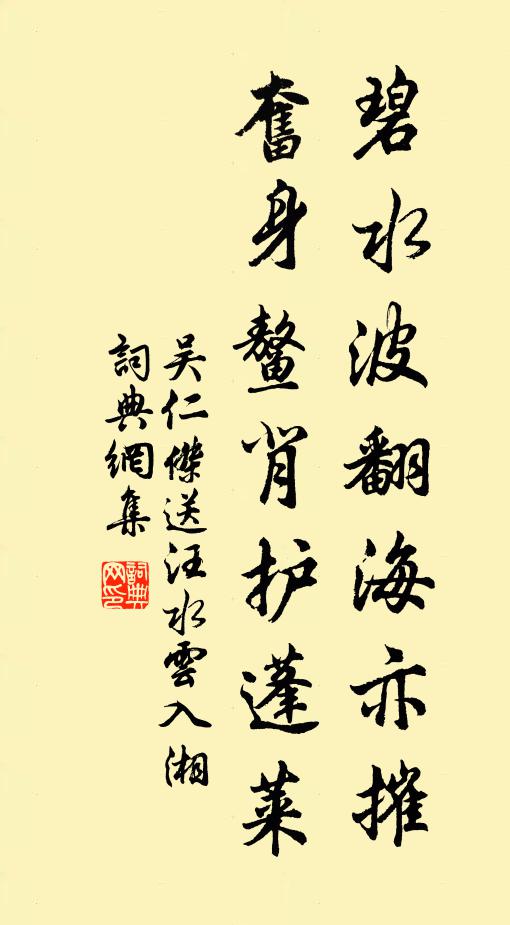 碧水波翻海亦摧
奮身鰲背护蓬萊
吴仁傑送汪水雲入湘
詞典網集
詞典网印